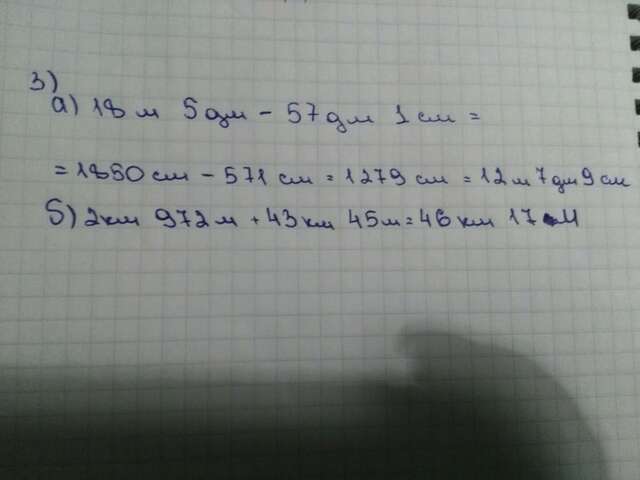 3)
а) 18 м 5 дм - 57 дм 1 см =
= 1850 см - 571 см = 1279 см = 12 м 7 дм 9 см
б) 2 км 972 м + 43 км 45 м = 46 км 17 м